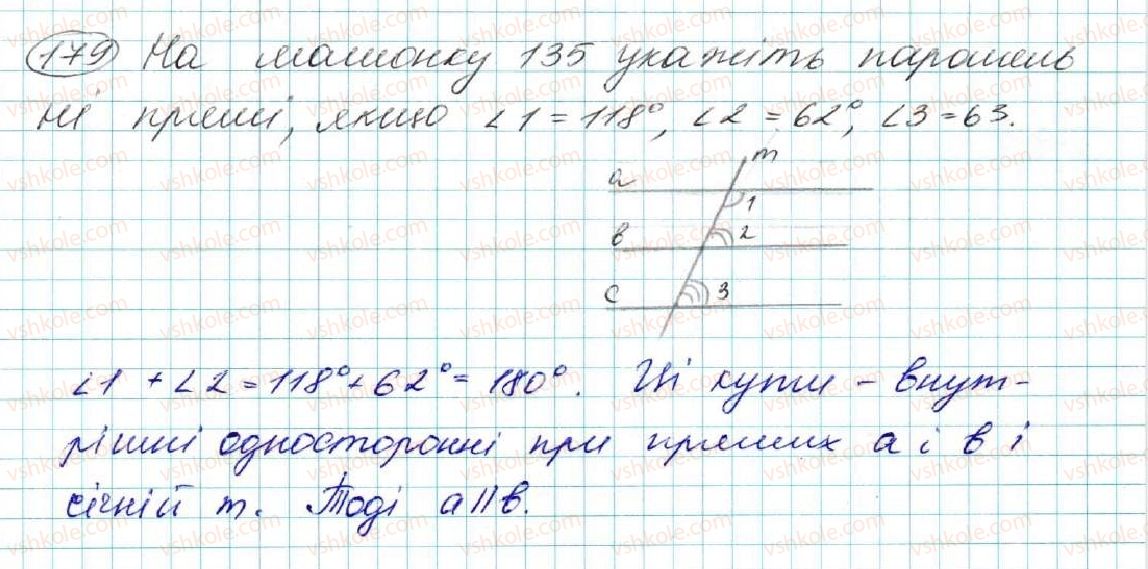 179 На малюнку 135 укажіть паралель
ні прямі, якщо ∠1 = 118°, ∠2 = 62°, ∠3 = 63.
m
a
1
в
2
c
3
∠1 + ∠2 = 118° + 62° = 180°. Ці кути – внут-
рішні односторонні при прямих a і в і
січній m. Тоді a||в.
vshkole.com